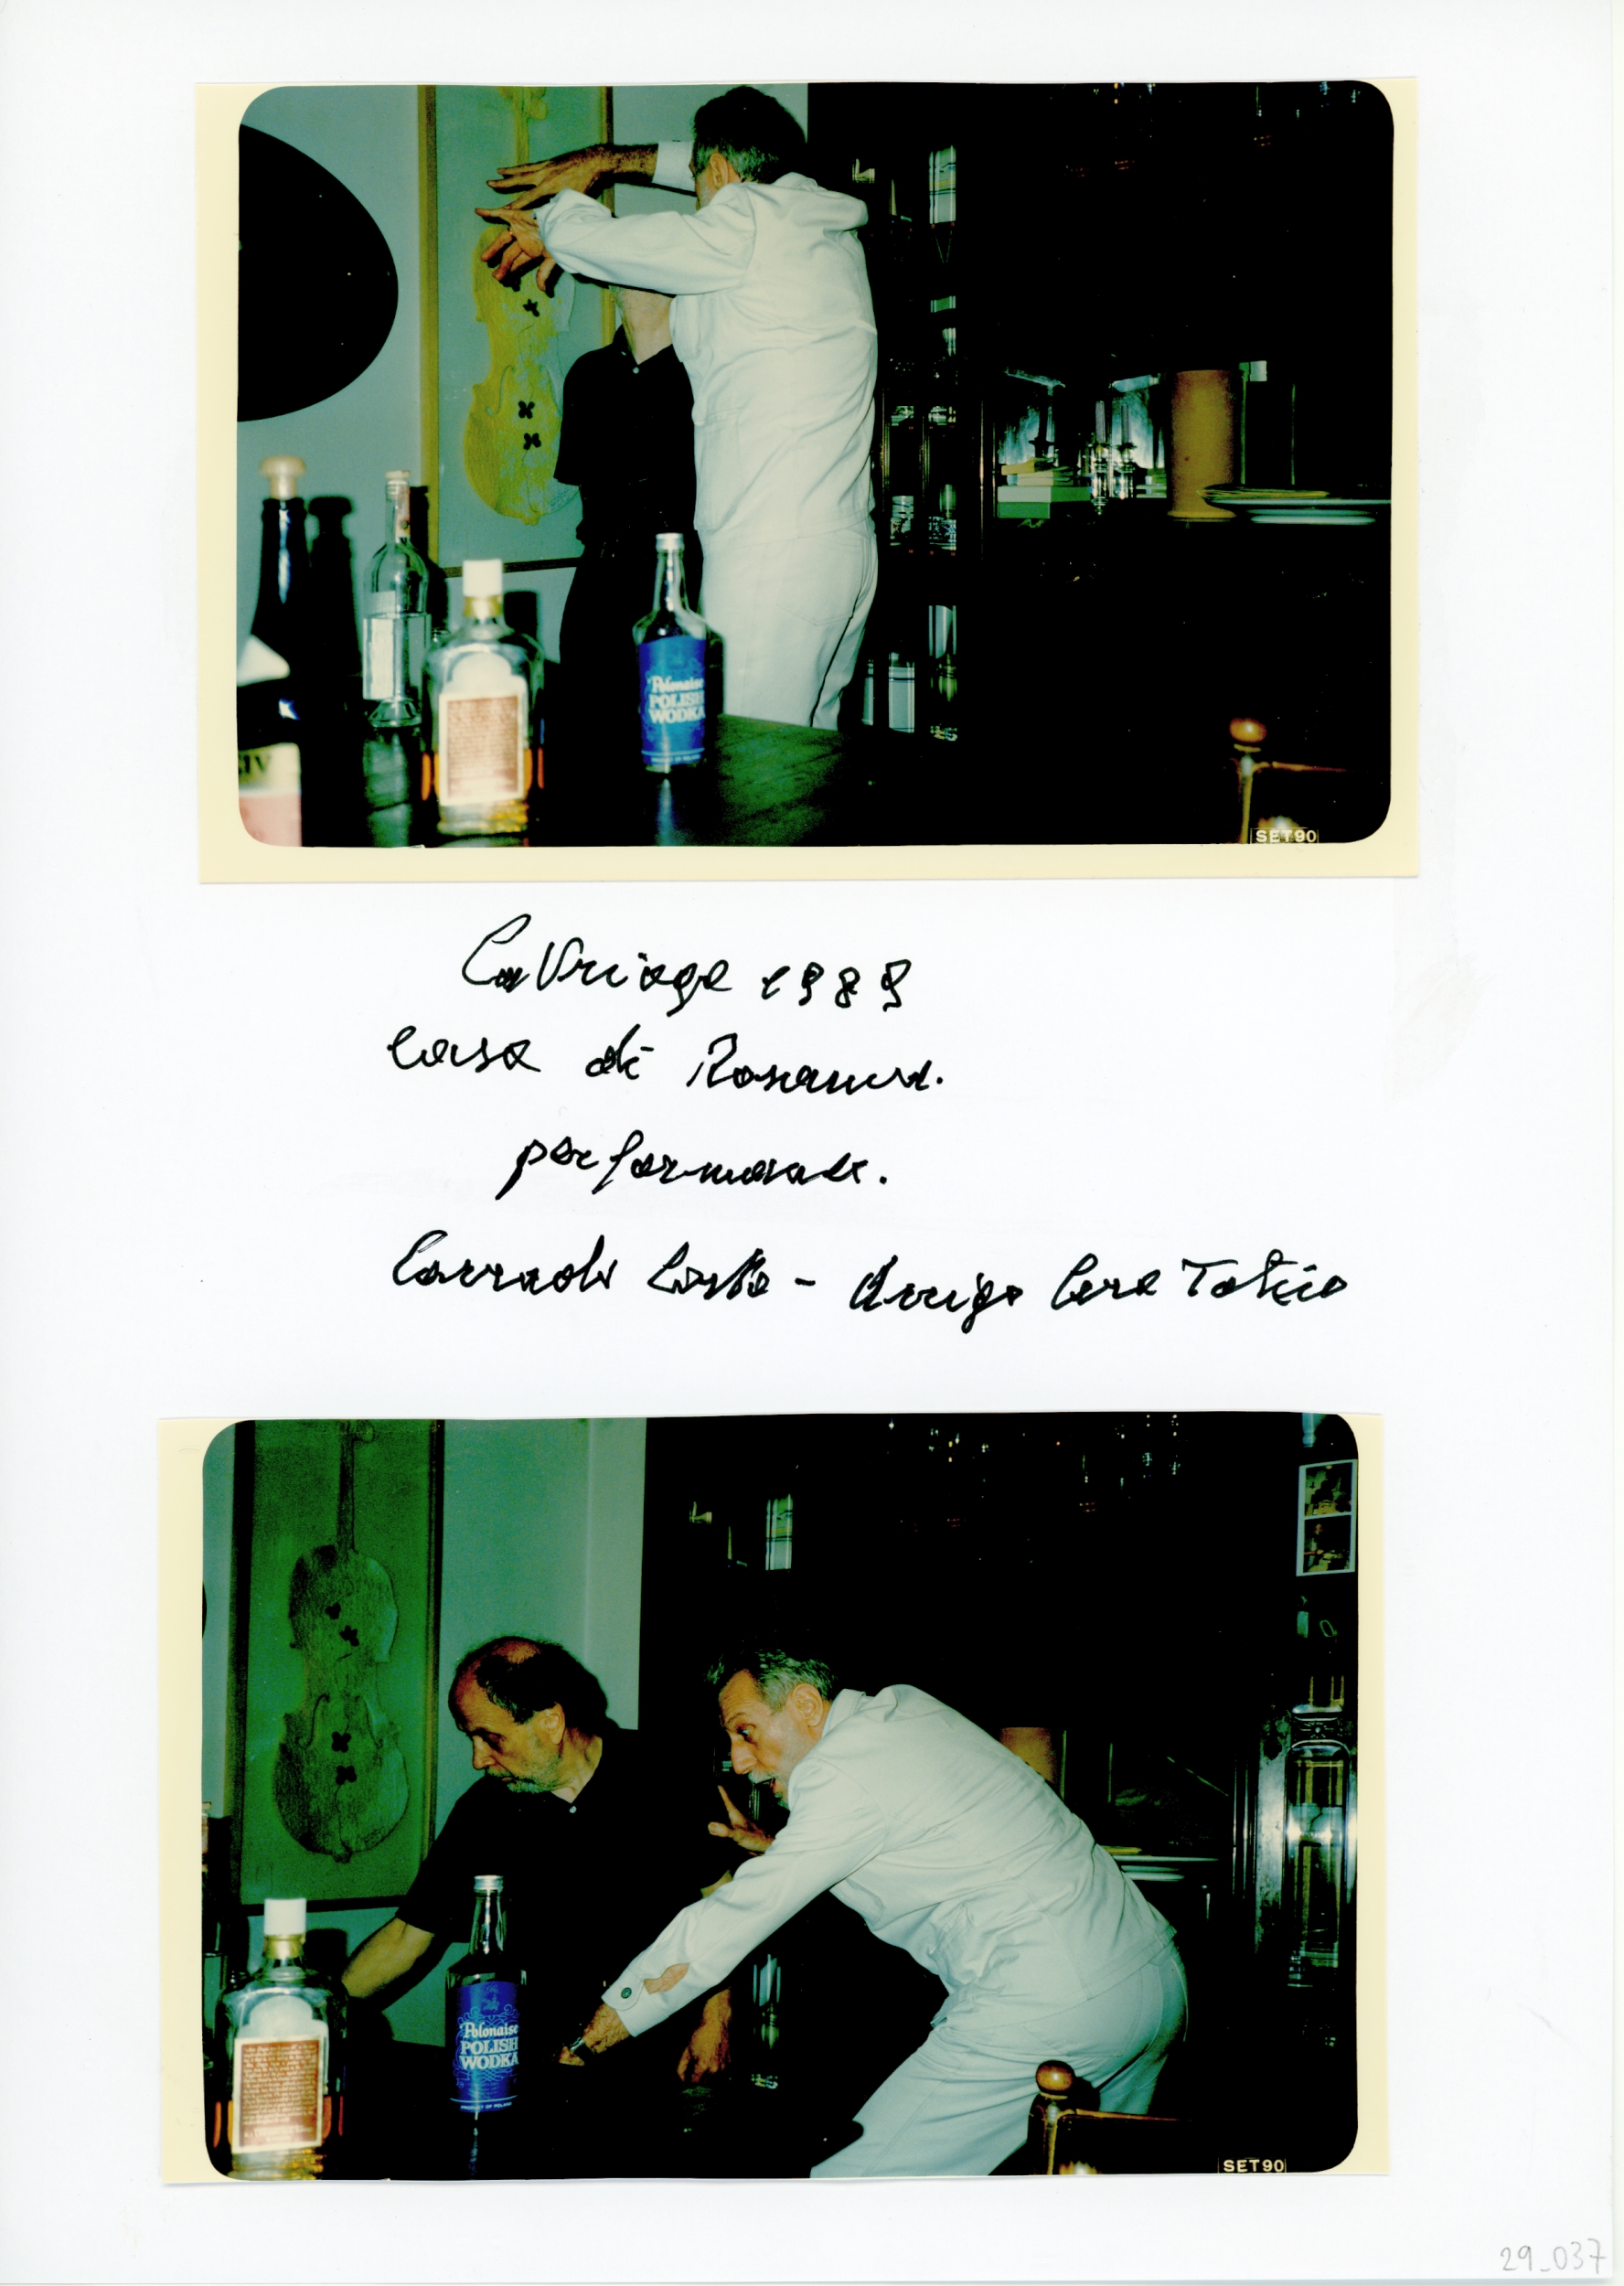 Polonaise
POLISH
WODKA
SET90
CaVriago 1989
Casa di Rosanna.
performance.
Corrado Costa - Arrigo Lora Totino
Polonaise
POLISH
WODKA
PRODUCT OF POLAND
SET90
29_037